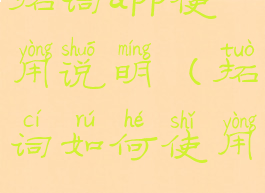 拓词app使
yòng shuō míng tuò
用说明（拓
cí rú hé shǐ yòng
词如何使用